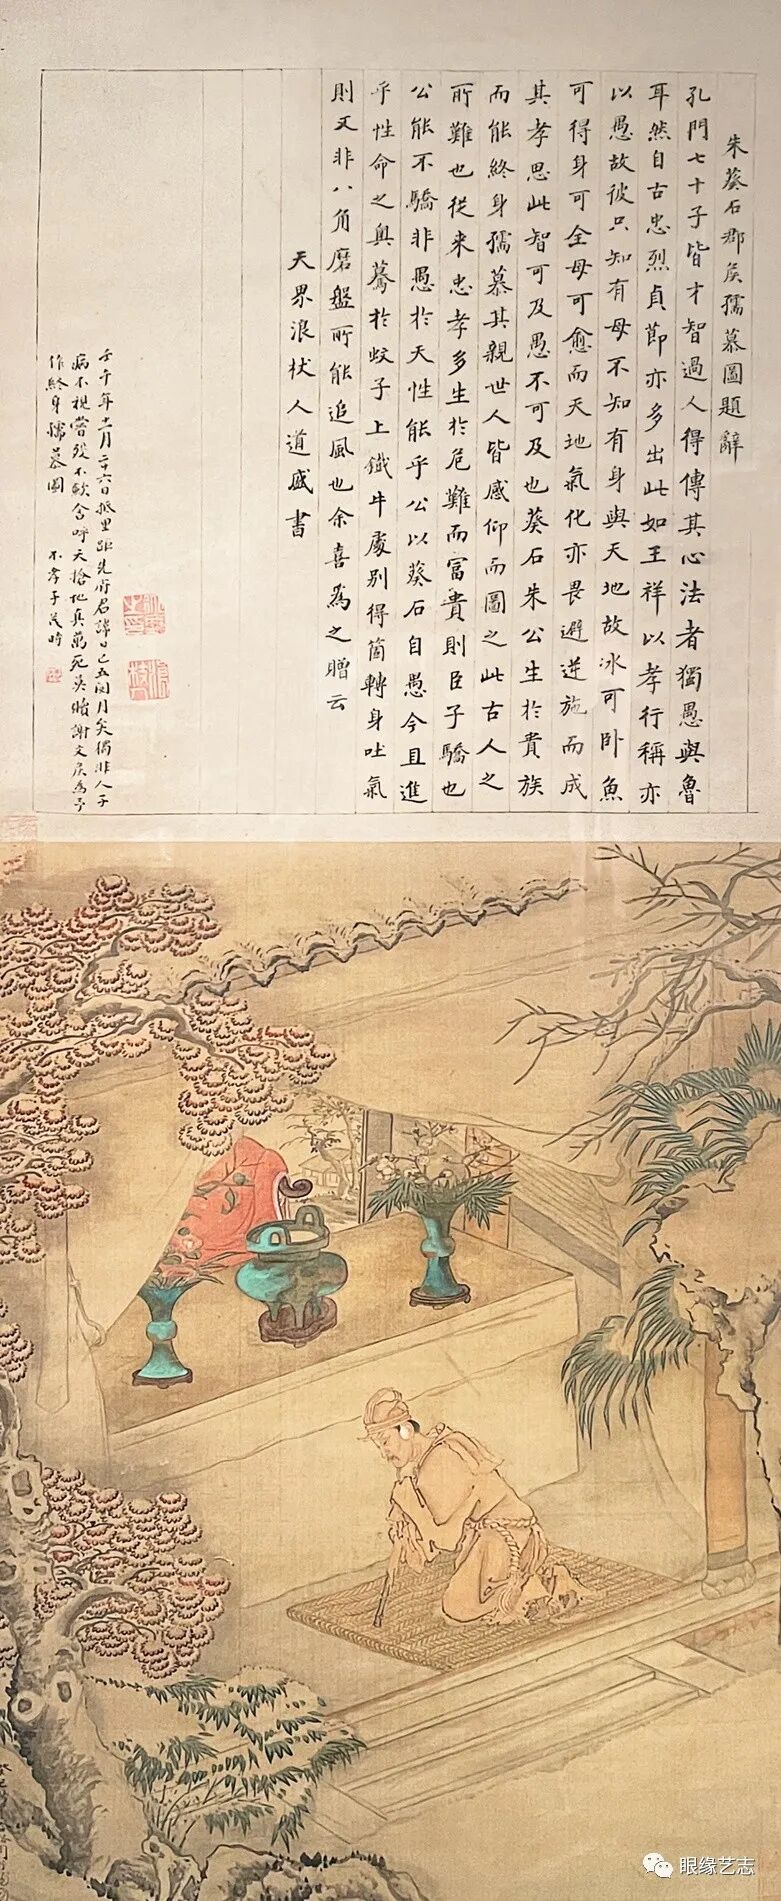 朱葵石郡矦孺慕圖題辭
孔門七十子皆才智過人得傳其心法者獨愚與魯
耳然自古忠烈貞節亦多出此如王祥以孝行稱亦
以愚故彼只知有母不知有身與天地故冰可卧魚
可得身可全母可愈而天地氣化亦畏避逆施而成
其孝思此智可及愚不可及也葵石朱公生於貴族
而能終身孺慕其親世人皆感仰而圖之此古人之
所難也從来忠孝多生於危難而富貴則臣子驕也
公能不驕非愚於天性能乎公以葵石自愚今且進
乎性命之奥驀於蚊子上鐵牛處别得箇轉身吐氣
則又非八角磨盤所能追風也余喜為之贈云
天界浪杖人道盛書
壬午年十一月二十六日抵里距先府君諱日已五閱月矣獨非人子
病不視嘗殁不歛含呼天搶地真萬死莫贖謝文矦為予
作終身孺慕圖
不孝子茂時
眼缘艺志